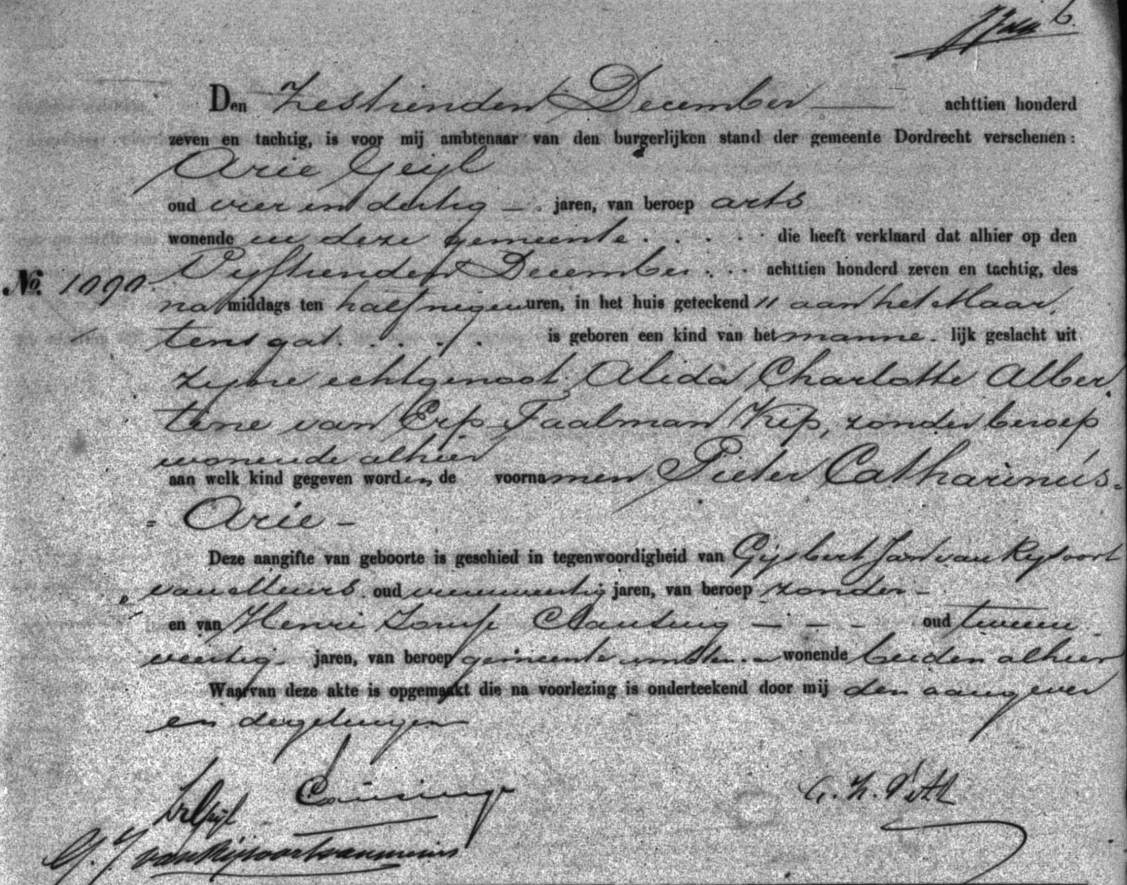 Den Zestienden December achttien honderd
zeven en tachtig, is voor mij ambtenaar van den burgerlijken stand der gemeente Dordrecht verschenen:
Arie Geijl
oud vier en dertig jaren, van beroep arts
wonende in deze gemeente . . . . . die heeft verklaard dat alhier op den
No. 1090. Vijftienden December . . . achttien honderd zeven en tachtig, des
namiddags ten half negen uren, in het huis geteekend 11 aan het Maar,
tensgat . . . . is geboren een kind van het manne- lijk geslacht uit
zijne echtgenoot, Alida Charlotte Alber,
tine van Erp Taalman Kip, zonder beroep
wonende alhier
aan welk kind gegeven worden de voornamen Pieter Catharinus=
= Arie –
Deze aangifte van geboorte is geschied in tegenwoordigheid van Gijsbert Jan van Rijsoort
van Meurs, oud jaren, van beroep zonder –
en van Henri oud tweeen,
veertig jaren, van beroep gemeente wonende beiden alhier
Waarvan deze akte is opgemaakt die na voorlezing is onderteekend door mij den aangever
en de getuigen
Geijl
G. J. van Rijsoort van Meurs